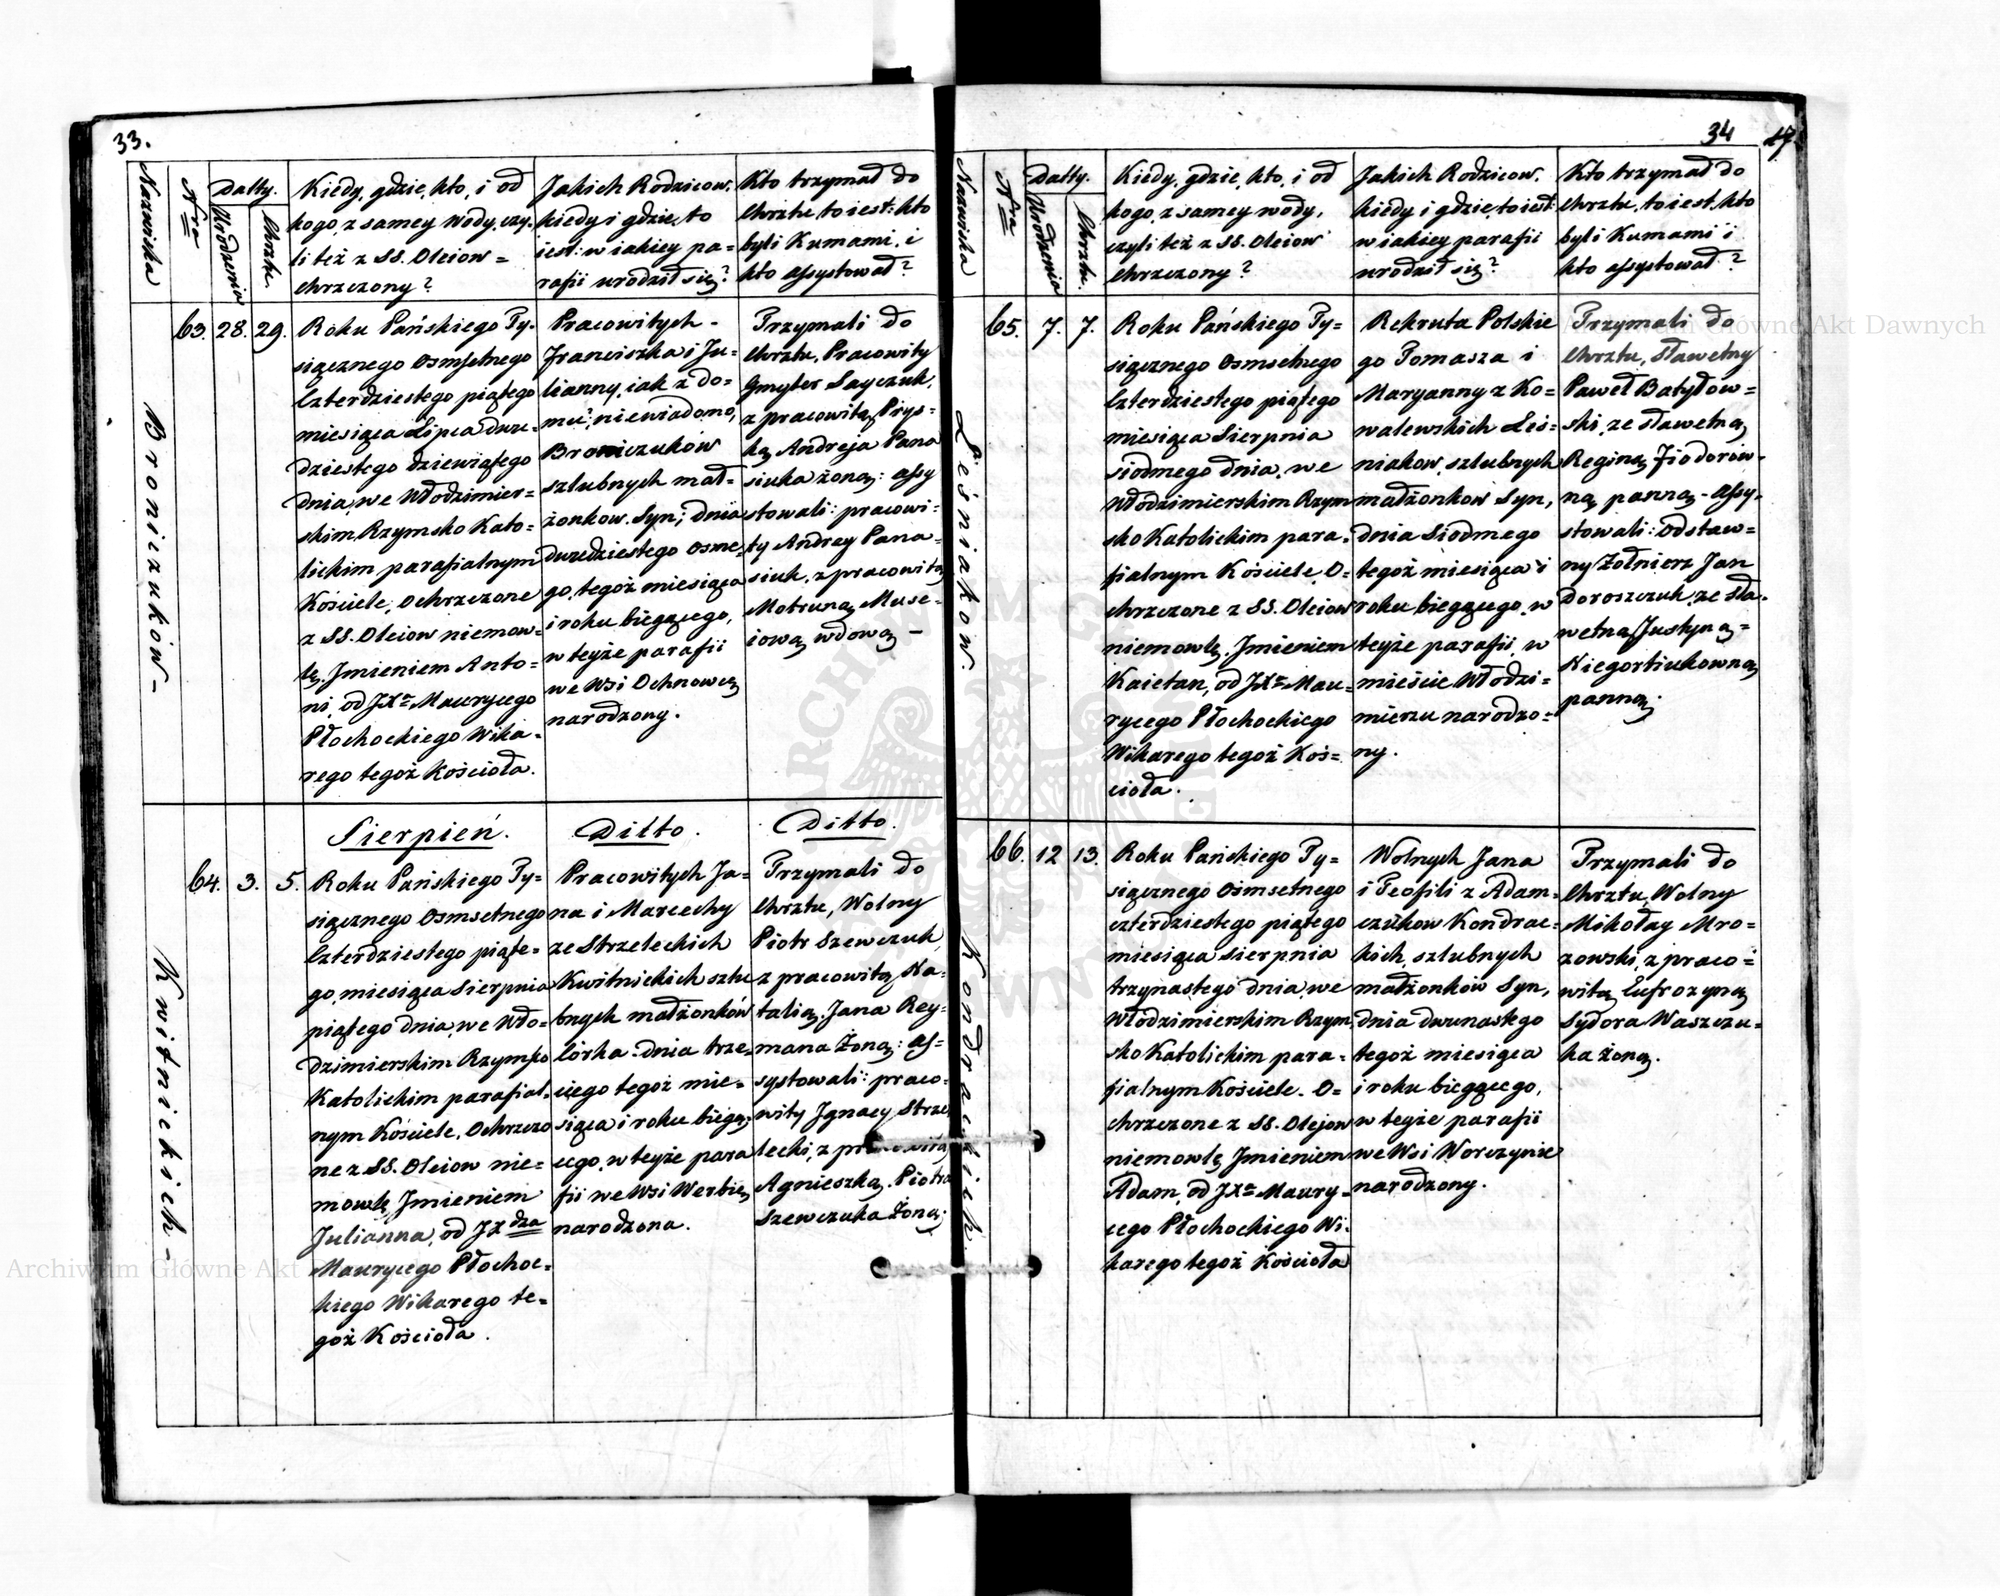 33.
Nazwiska
Nra
Datty.
Urodzenia
Chrztu.
Kiedy, gdzie, kto, i od
kogo, z samey wody, czy-
li też z SS. Oleiow =
chrzczony?
Jakich Rodzicow,
kiedy i gdzie, to
iest: w iakiey pa=
rafii urodził się?
Kto trzymał do
Chrztu to iest: kto
byli Kumami, i
kto assystował?
Broniczuków -
63. 28. 29.
Roku Pańskiego Ty-
siącznego Osmsetnego
Czterdziestego piątego
miesiąca Lipca dwu-
dziestego dziewiątego
dnia, we Włodzimier=
skim Rzymsko Kato=
lickim parafialnym
Kościele, Ochrzczone
z SS. Oleiow niemow=
lę, Jmieniem Anto=
ni, od JXa Maurycego
Płochockiego Wika-
rego tegoż Kościoła.
Pracowitych -
Franciszka i Ju=
lianny, iak z do=
mu, niewiadomo,
Broniczukow
szlubnych mał=
żonkow. Syn; dnia
dwudziestego osme-
go, tegoż miesiąca
i roku bieżącego,
w teyże parafii
we Wsi Ochnowce
narodzony.
Trzymali do
Chrztu, Pracowity
Gmyter Sayczuk,
z pracowitą Prys=
ką Andreja Pana
siuka żoną: assy
stowali: pracowi=
ty Andrey Pana=
siuk, z pracowitą
Motruną Muse=
iową wdową -
Kwitnickich -
Sierpień.
Ditto.
Ditto.
64. 3. 5.
Roku Pańskiego Ty=
siącznego Osmsetnego
Czterdziestego piąte=
go, miesiąca Sierpnia
piątego dnia, we Wło=
dzimierskim Rzymsko
Katolickim parafial=
nym Kościele, Ochrzczo
ne z SS. Oleiow nie=
mowlę, Jmieniem
Julianna, od JX dza
Maurycego Płochoc=
kiego Wikarego te=
goż Kościoła.
Pracowitych Ja=
na i Marcechy
ze Strzeleckich
Kwitnickich szlu
bnych małżonków
Córka. dnia trze=
ciego tegoż mie=
siąca i roku bieżą=
cego, w teyże para
fii we Wsi Werbie
narodzona.
Trzymali do
Chrztu, Wolny
Piotr Szewczuk,
z pracowitą Na=
talią, Jana Rey=
mana Żoną: as=
systowali: praco=
wity Jgnacy Strze
lecki, z pracowitą
Agnieszką, Piotra
Szewczuka Żoną;
34
17.
Nazwiska
Nra
Datty.
Urodzenia
Chrztu.
Kiedy, gdzie, kto, i od
kogo, z samey wody,
czyli też z SS. Oleiow
chrzczony?
Jakich Rodzicow,
kiedy i gdzie, to iest:
w iakiey parafii
urodził się?
Kto trzymał do
Chrztu, to iest, kto
byli Kumami i
kto assystował?
Leśniakow.
65. 7. 7.
Roku Pańskiego Ty=
siącznego Osmsetnego
Czterdziestego piątego
miesiąca Sierpnia
siodmego dnia, we
Włodzimierskim Rzym
sko Katolickim para-
fialnym Kościele O=
chrzczone z SS. Oleiow
niemowlę, Jmieniem
Kaietan, od JXa Mau=
rycego Płochockiego
Wikarego tegoż Koś=
cioła.
Rekruta Polskie
go Tomasza i
Maryanny z Ko=
walewskich Leś=
niakow, szlubnych
małżonkow Syn,
dnia Siodmego
tegoż miesiąca i
roku bieżącego, w
teyże parafii, w
mieście Włodzi=
mierzu narodzo=
ny.
Trzymali do
Chrztu, sławetny
Paweł Batydow=
ski, ze sławetną
Reginą Fiodorow=
ną, panną - assy-
stowali: Odstaw=
ny Żołnierz Jan
Doroszczuk, ze sła-
wetną Justyną =
Niegortiukowną
panną.
Kondrackich.
66. 12 13.
Roku Pańskiego Ty=
siącznego Ośmsetnego
czterdziestego piątego
miesiąca Sierpnia
trzynastego dnia, we
Włodzimierskim Rzym
sko Katolickim para=
fialnym Kościele. O=
chrzczone z SS. Olejow
niemowlę Jmieniem
Adam, od JXa Maury=
cego Płochockiego Wi-
karego tegoż Kościoła
Wolnych Jana
i Teofili z Adam=
czukow Kondrac=
kich, szlubnych
małżonków Syn,
dnia dwunastego
tegoż miesiąca
i roku bieżącego,
w teyże parafii
we Wsi Worczynie
narodzony.
Trzymali do
Chrztu, Wolny
Mikołay Mro=
zowski, z praco=
witą Eufrozyną
Sydora Waszczu=
ka żoną.
Archiwum Główne Akt Dawnych